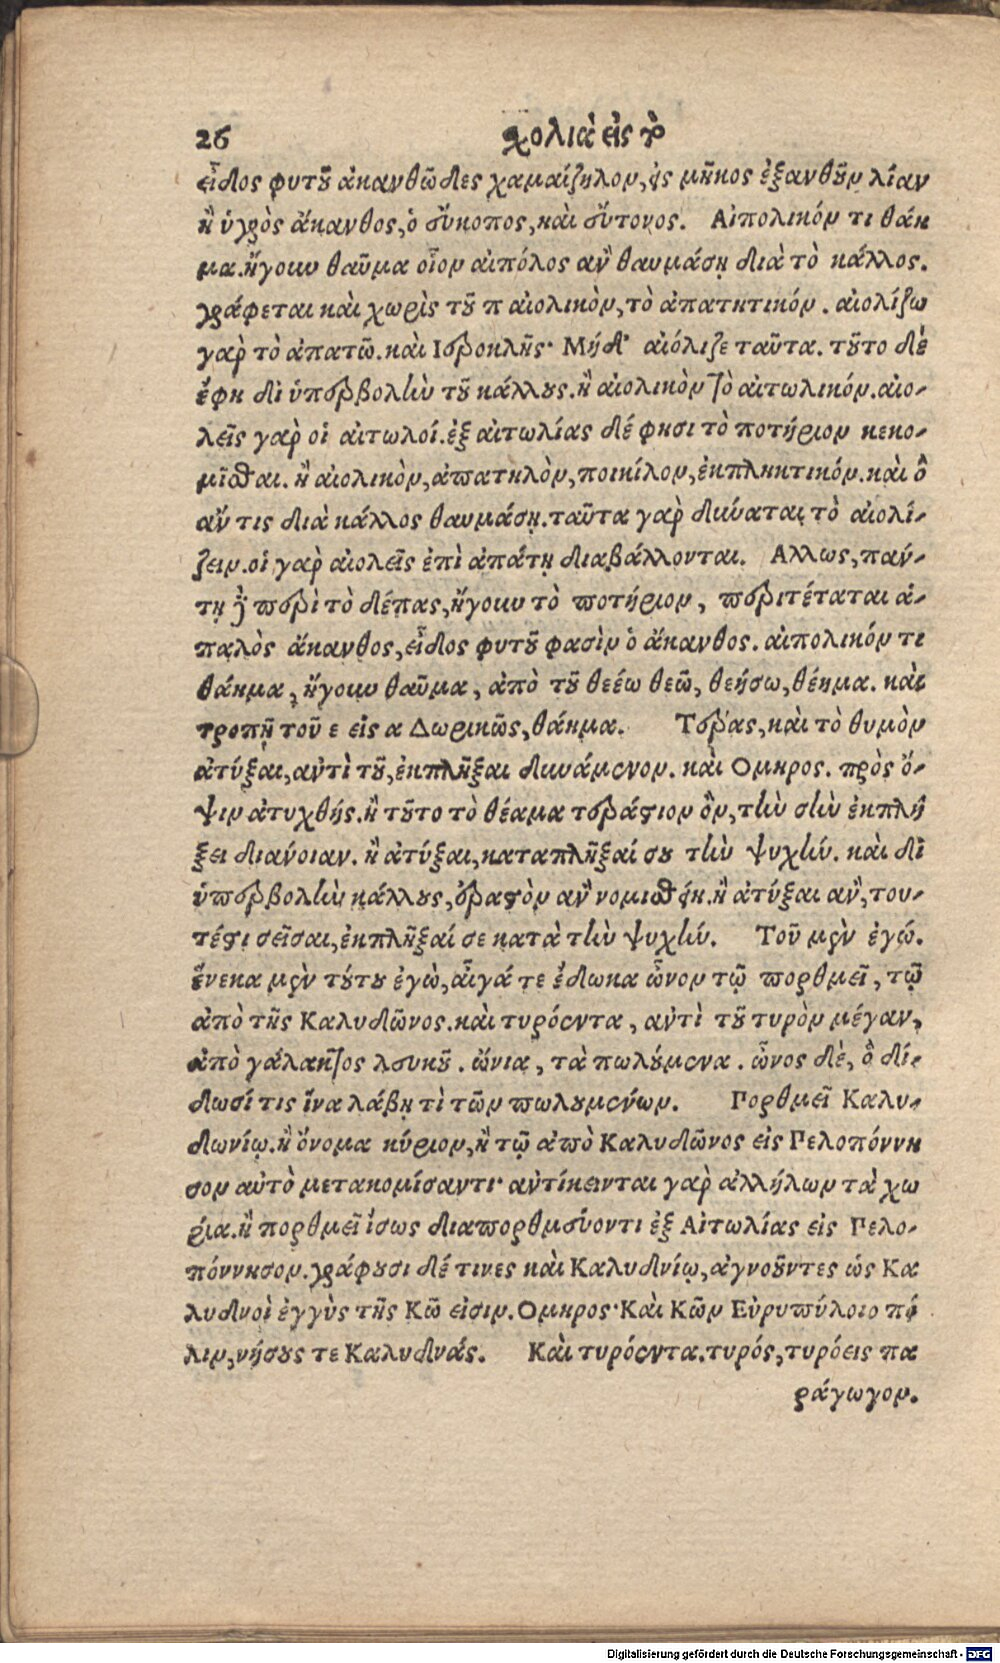 26 χολιὰ εἰς τὸ
εἶδος φυτοῦ ἀκανθῶδες χαμαίζηλον, εἰς μῆκος ἐξανθοῦν λίαν
ἢ ὑγρὸς ἄκανθος, ὁ εὔκοπος, καὶ εὔτονος. Αἰπολικόν τι θάη
μα. ἤγουν θαῦμα οἷον αἰπόλος ἂν θαυμάσῃ διὰ τὸ κάλλος.
γράφεται καὶ χωρὶς τοῦ π αἰολικὸν, τὸ ἀπατητικόν. αἰολίζω
γαρ τὸ ἀπατῶ. καὶ Ισοροκλῆς· Μήδ' αἰόλιζε ταῦτα. τοῦτο δὲ
ἔφη δι ὑπερβολὴν τοῦ κάλλους. ἢ αἰολικὸν τὸ αἰτωλικόν. αἰο-
λεῖς γαρ οἱ αἰτωλοί. ἐξ αἰτωλίας δέ φησι τὸ ποτήριον κεκο-
μῖσθαι. ἢ αἰολικὸν, ἀπατηλὸν, ποικίλον, ἐκπληκτικόν. καὶ ὃ
ἄν τις διὰ κάλλος θαυμάσῃ. ταῦτα γαρ δύναται τὸ αἰολί-
ζειν. οἱ γαρ αἰολεῖς ἐπὶ ἀπάτῃ διαβάλλονται. Αλλως, παν-
τῇ δὲ περὶ τὸ δέπας, ἤγουν τὸ ποτήριον, περιτέταται ἁ-
παλὸς ἄκανθος, εἶδος φυτοῦ φασὶν ὁ ἄκανθος. αἰπολικόν τι
θάημα, ἤγουν θαῦμα, ἀπὸ τοῦ θεέω θεῶ, θεήσω, θέημα. καὶ
τροπῇ τοῦ ε εἰς α Δωρικῶς, θάημα. Τέρας, καὶ τὸ θυμὸν
ἀτύξαι, ἀντὶ τοῦ, ἐκπλῆξαι δυνάμενον. καὶ Ομηρος. πρὸς ὄ-
ψιν ἀτυχθής. ἢ τοῦτο τὸ θέαμα τεράστιον ὂν, τὴν σὴν ἐκπλή
ξει διάνοιαν. ἢ ἀτύξαι, καταπλῆξαί σου τὴν ψυχήν. καὶ δι
ὑπερβολὴν κάλλους, ἐραστὸν ἂν νομισθείη. ἢ ἀτύξαι ἂν, του-
τέστι σεῖσαι, ἐκπλῆξαί σε κατὰ τὴν ψυχήν. Τοῦ μὲν ἐγώ.
ἕνεκα μὲν τούτου ἐγὼ, αἶγά τε ἔδωκα ὦνον τῷ πορθμεῖ, τῷ
ἀπὸ τῆς Καλυδῶνος. καὶ τυρόεντα, ἀντὶ τοῦ τυρὸν μέγαν,
ἀπὸ γάλακτος λευκοῦ. ὤνια, τὰ πωλούμενα. ὦνος δὲ, ὃ δί-
δωσί τις ἵνα λάβῃ τὶ τῶν πωλουμένων. Πορθμεῖ Καλυ-
δωνίῳ. ἢ ὄνομα κύριον, ἢ τῷ ἀπὸ Καλυδῶνος εἰς Πελοπόννη
σον αὐτὸ μετακομίσαντι· ἀντίκεινται γαρ ἀλλήλων τὰ χω
ρία. ἢ πορθμεῖ ἴσως διαπορθμεύοντι ἐξ Αἰτωλίας εἰς Πελο-
πόννησον. γράφουσι δέ τινες καὶ Καλυδνίῳ, ἀγνοοῦντες ὡς Κα
λυδνοὶ ἐγγὺς τῆς Κῶ εἰσιν. Ομηρος· Καὶ Κῶν Εὐρυπύλοιο πό
λιν, νήσους τε Καλυδνάς. Καὶ τυρόεντα. τυρός, τυρόεις πα
ράγωγον.
Digitalisierung gefördert durch die Deutsche Forschungsgemeinschaft - DFG